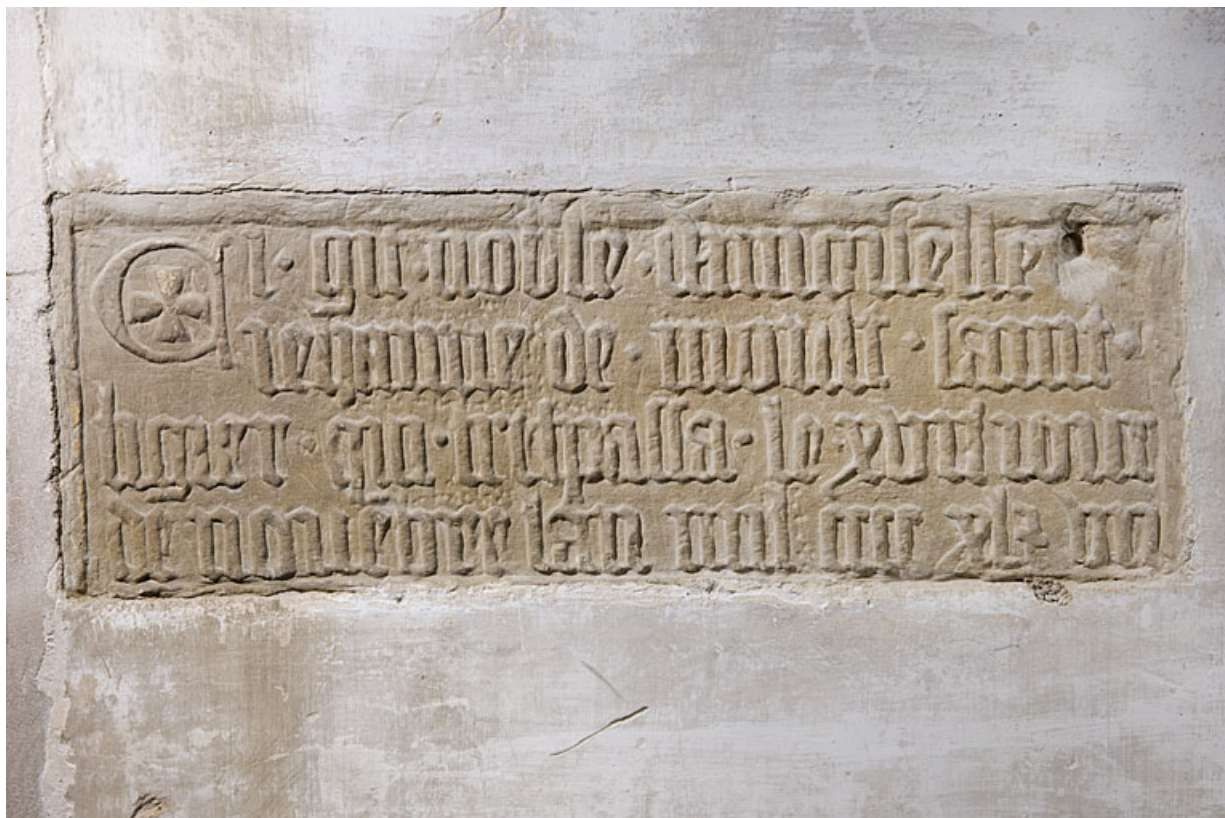 Ci · git · noble · damoiselle
iehanne de · mont · saint ·
ligier · qui · trespassa · le iour
de noviebre lan mil cccc